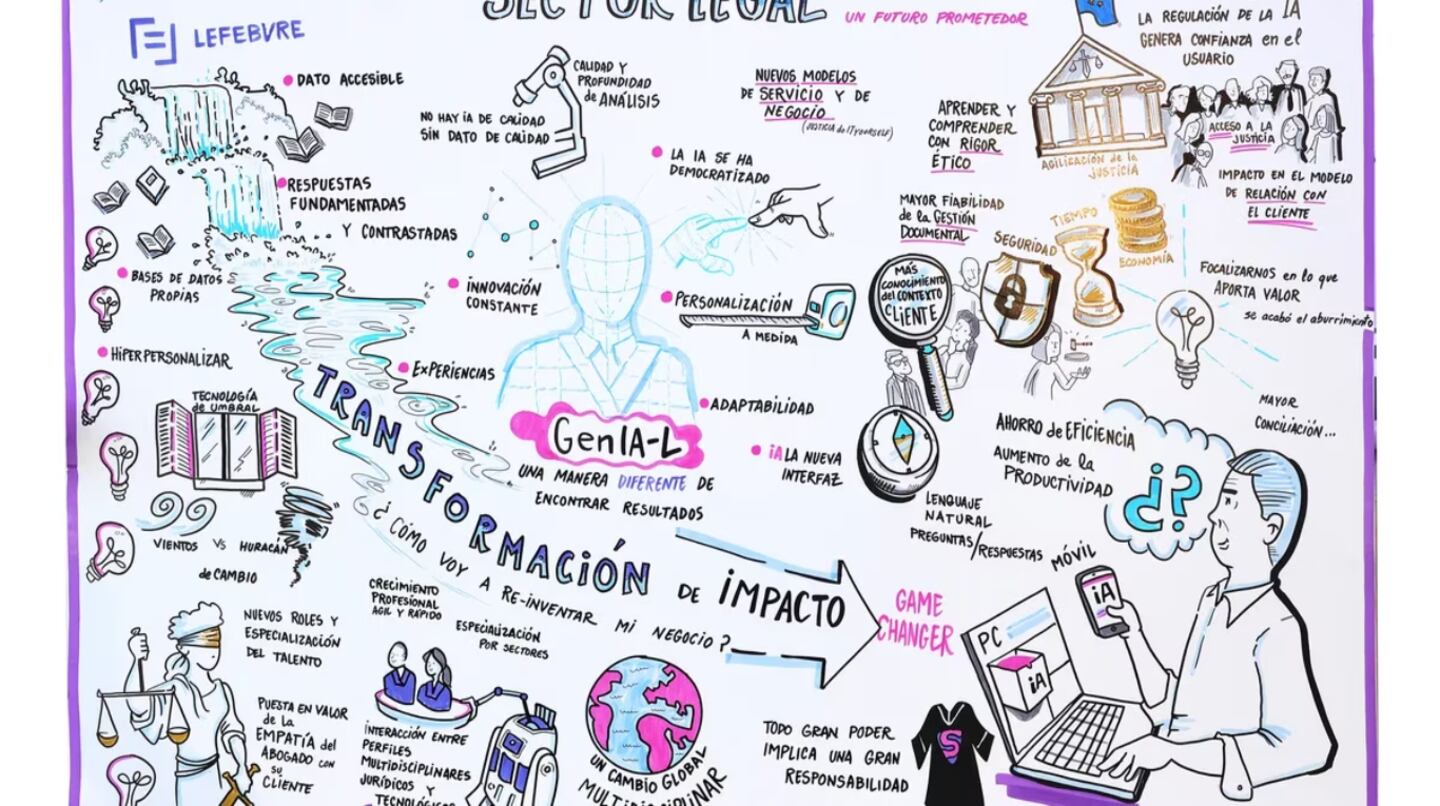 SECTOR LEGAL
UN FUTURO PROMETEDOR
LEFEBVRE
DATO ACCESIBLE
RESPUESTAS
FUNDAMENTADAS
Y CONTRASTADAS
BASES DE DATOS
PROPIAS
HiPERPERSONALIZAR
TECNOLOGÍA
de UMBRAL
VIENTOS VS HURACÁN
de CAMBIO
CALIDAD Y
PROFUNDIDAD
de ANÁLISIS
NO HAY iA DE CALIDAD
SIN DATO DE CALIDAD
NUEVOS MODELOS
DE SERVICIO Y DE
NEGOCIO
(JUSTICIA do ITYOURSELF)
LA IA SE HA
DEMOCRATIZADO
iNNOVACIÓN
CONSTANTE
PERSONALIZACIÓN
A MEDIDA
EXPERIENCIAS
ADAPTABILIDAD
iA LA NUEVA
INTERFAZ
GenIA-L
UNA MANERA DIFERENTE DE
ENCONTRAR RESULTADOS
APRENDER Y
COMPRENDER
CON RIGOR
ÉTICO
LA REGULACIÓN DE LA IA
GENERA CONFIANZA en el
USUARIO
AGILIZACIÓN de la
JUSTICIA
ACCESO A LA
JUSTICIA
IMPACTO EN EL MODELO
DE RELACIÓN CON
EL CLIENTE
MAYOR FIABILIDAD
de la GESTIÓN
DOCUMENTAL
SEGURIDAD
TIEMPO
ECONOMÍA
MÁS
CONOCIMIENTO
del CONTEXTO
CLIENTE
FOCALIZARNOS en lo que
APORTA VALOR
se acabó el aburrimiento
MAYOR
CONCILIACIÓN...
AHORRO de EFICIENCIA
AUMENTO de la
PRODUCTIVIDAD
¿?
LENGUAJE
NATURAL
PREGUNTAS/RESPUESTAS
MÓVIL
iA
PC
iA
TRANSFORMACIÓN DE iMPACTO
¿CÓMO VOY A RE-INVENTAR MI NEGOCIO?
GAME
CHANGER
NUEVOS ROLES Y
ESPECIALIZACIÓN
DEL TALENTO
PUESTA EN VALOR
de la
EMPATÍA del
ABOGADO con
su
CLIENTE
CRECIMIENTO
PROFESIONAL
AGIL Y RÁPIDO
ESPECIALIZACIÓN
POR SECTORES
INTERACCIÓN ENTRE
PERFILES
MULTIDISCIPLINARES
JURÍDICOS Y
TECNOLÓGICOS
UN CAMBIO GLOBAL
MULTIDISCIPLINAR
TODO GRAN PODER
IMPLICA UNA GRAN
RESPONSABILIDAD
S